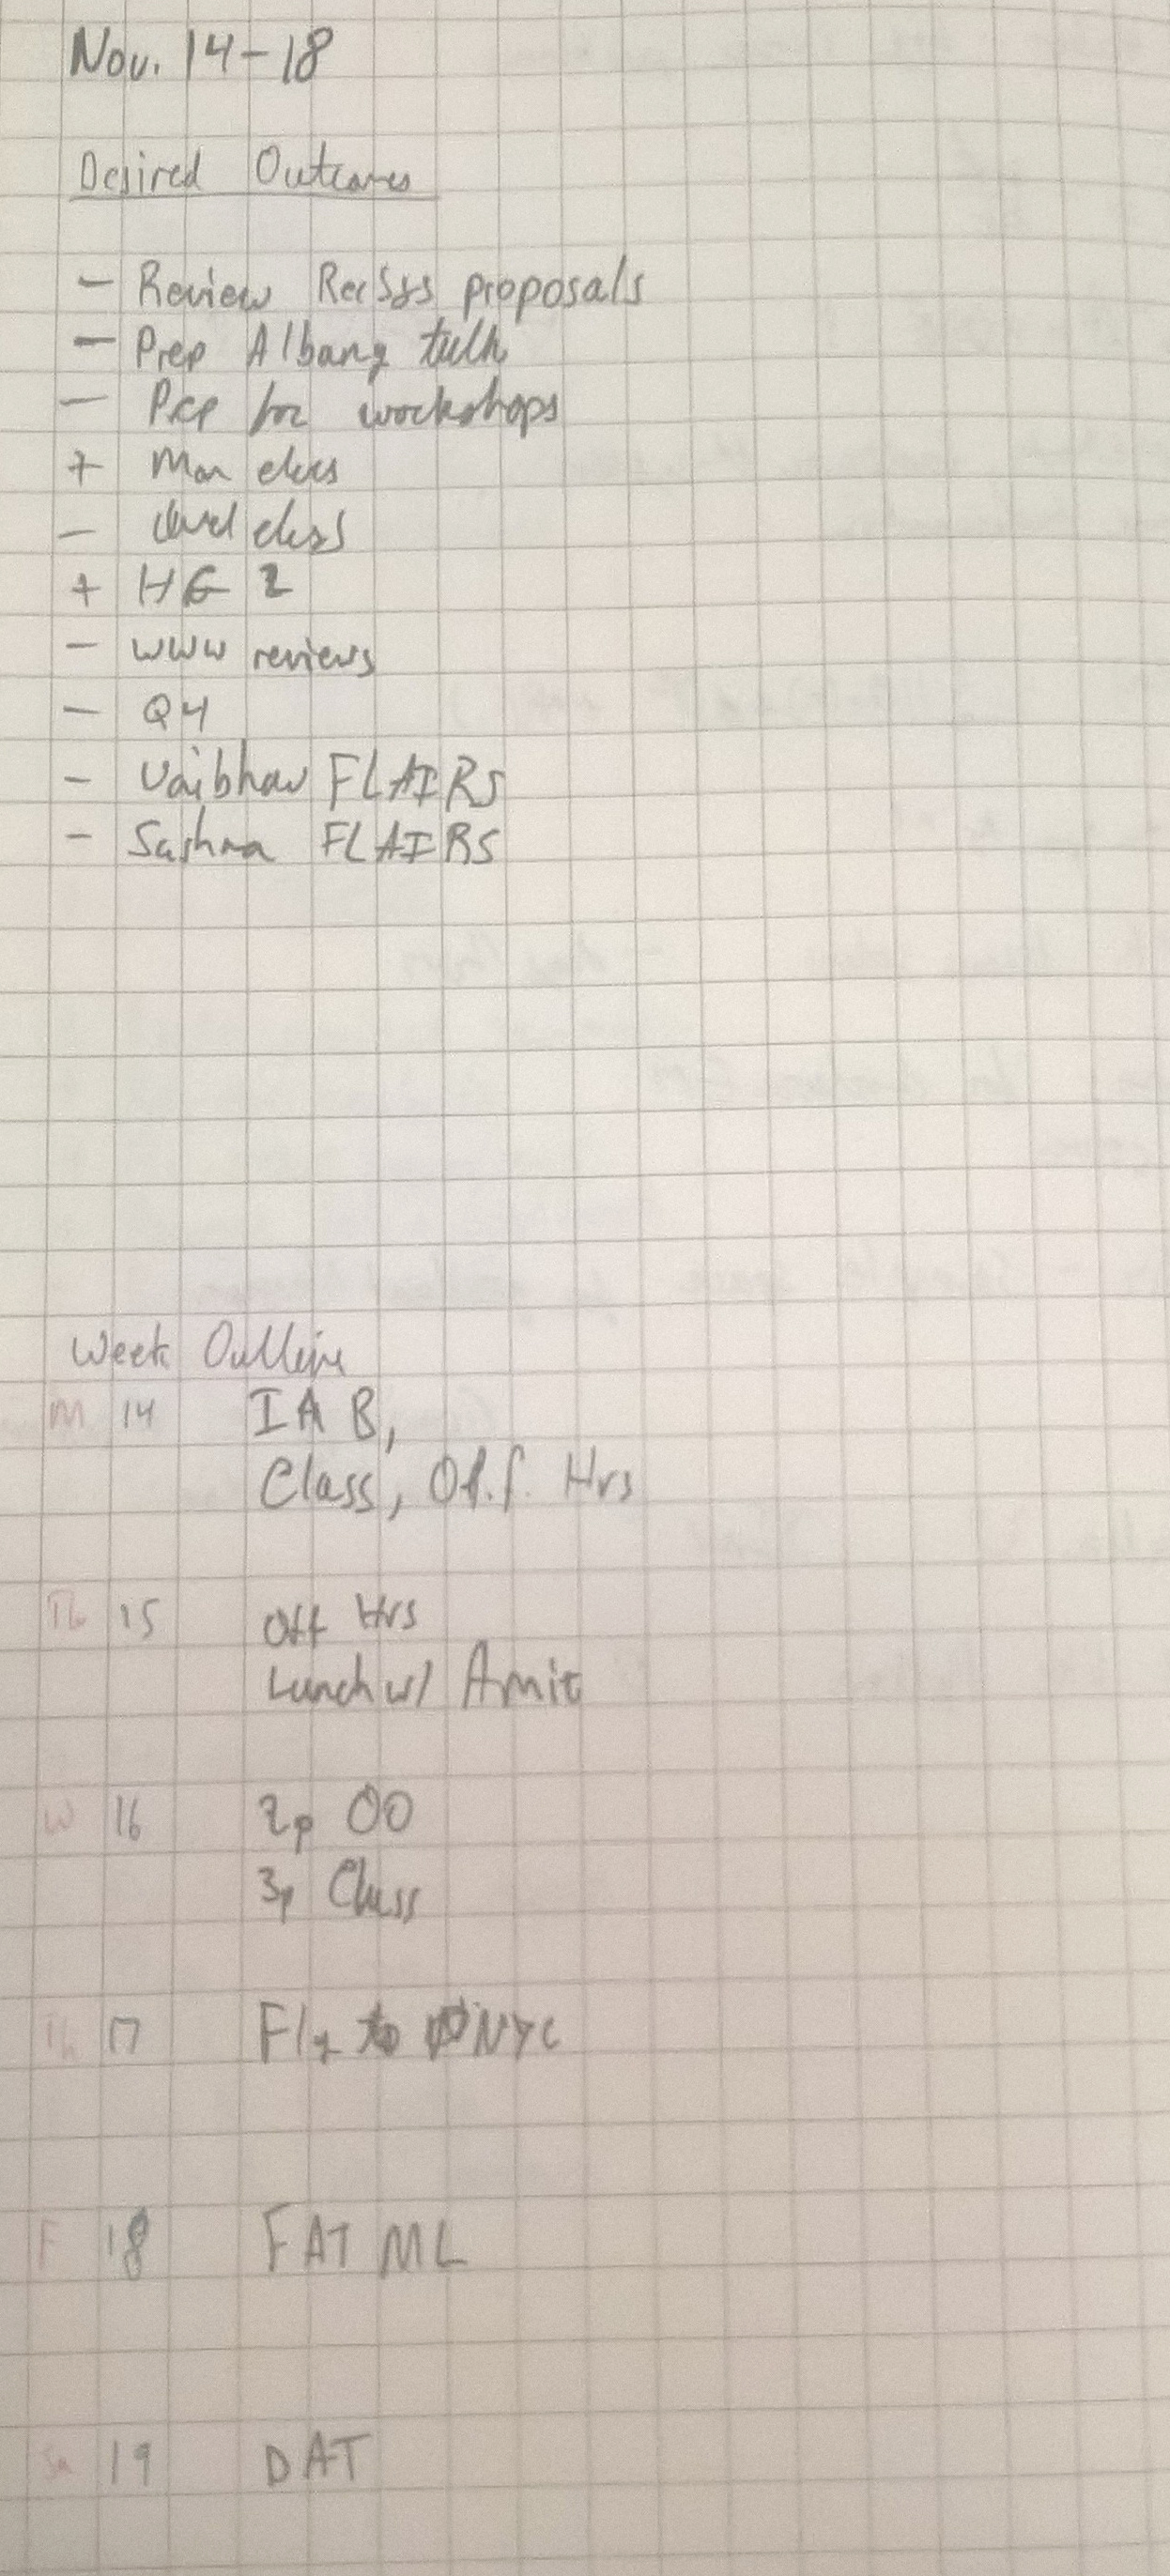 Nov. 14-18
Desired Outcomes
- Review RecSys proposals
- Prep Albany talk
- Prep for workshops
+ Mon class
- Wed class
+ HG 2
- WWW reviews
- Q4
- Vaibhav FLAIRS
- Sushma FLAIRS
Week Outline
M 14 IAB,
Class, Off. Hrs
15 Off Hrs
Lunch w/ Amit
W 16 2p OO
3p Class
Th 17 Fly to NYC
F 18 FAT ML
Sa 19 DAT